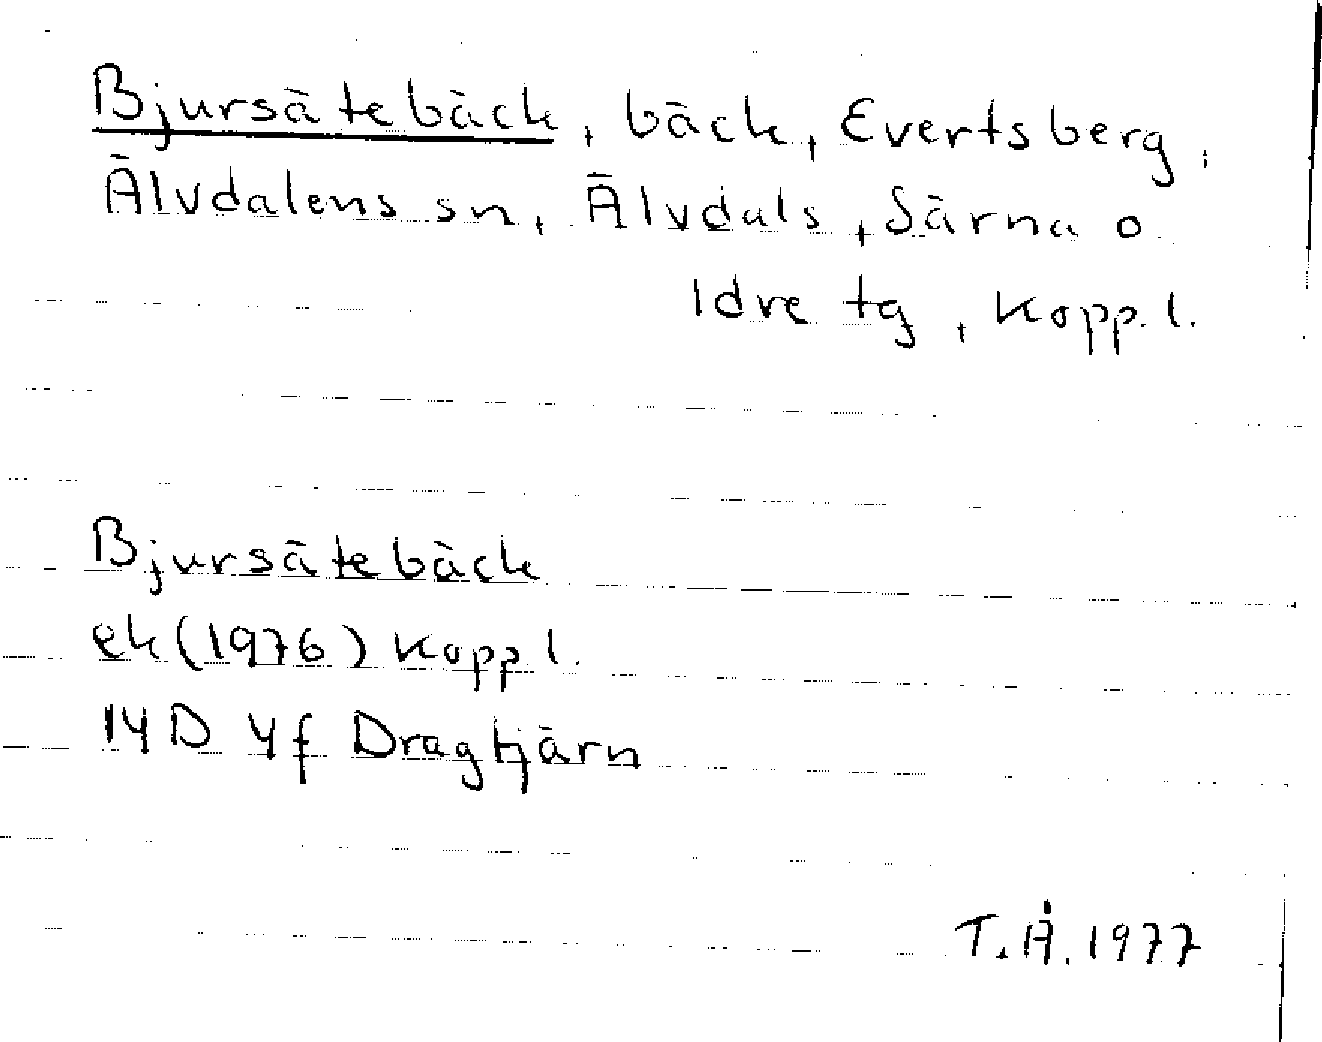 Bjursätebäck, bäck, Evertsberg,
Älvdalens sn, Älvdals, Särna o
Idre tg, Kopp. l.
Bjursätebäck
ek (1976) Kopp l.
14D 4f Dragtjärn
T.Å. 1977